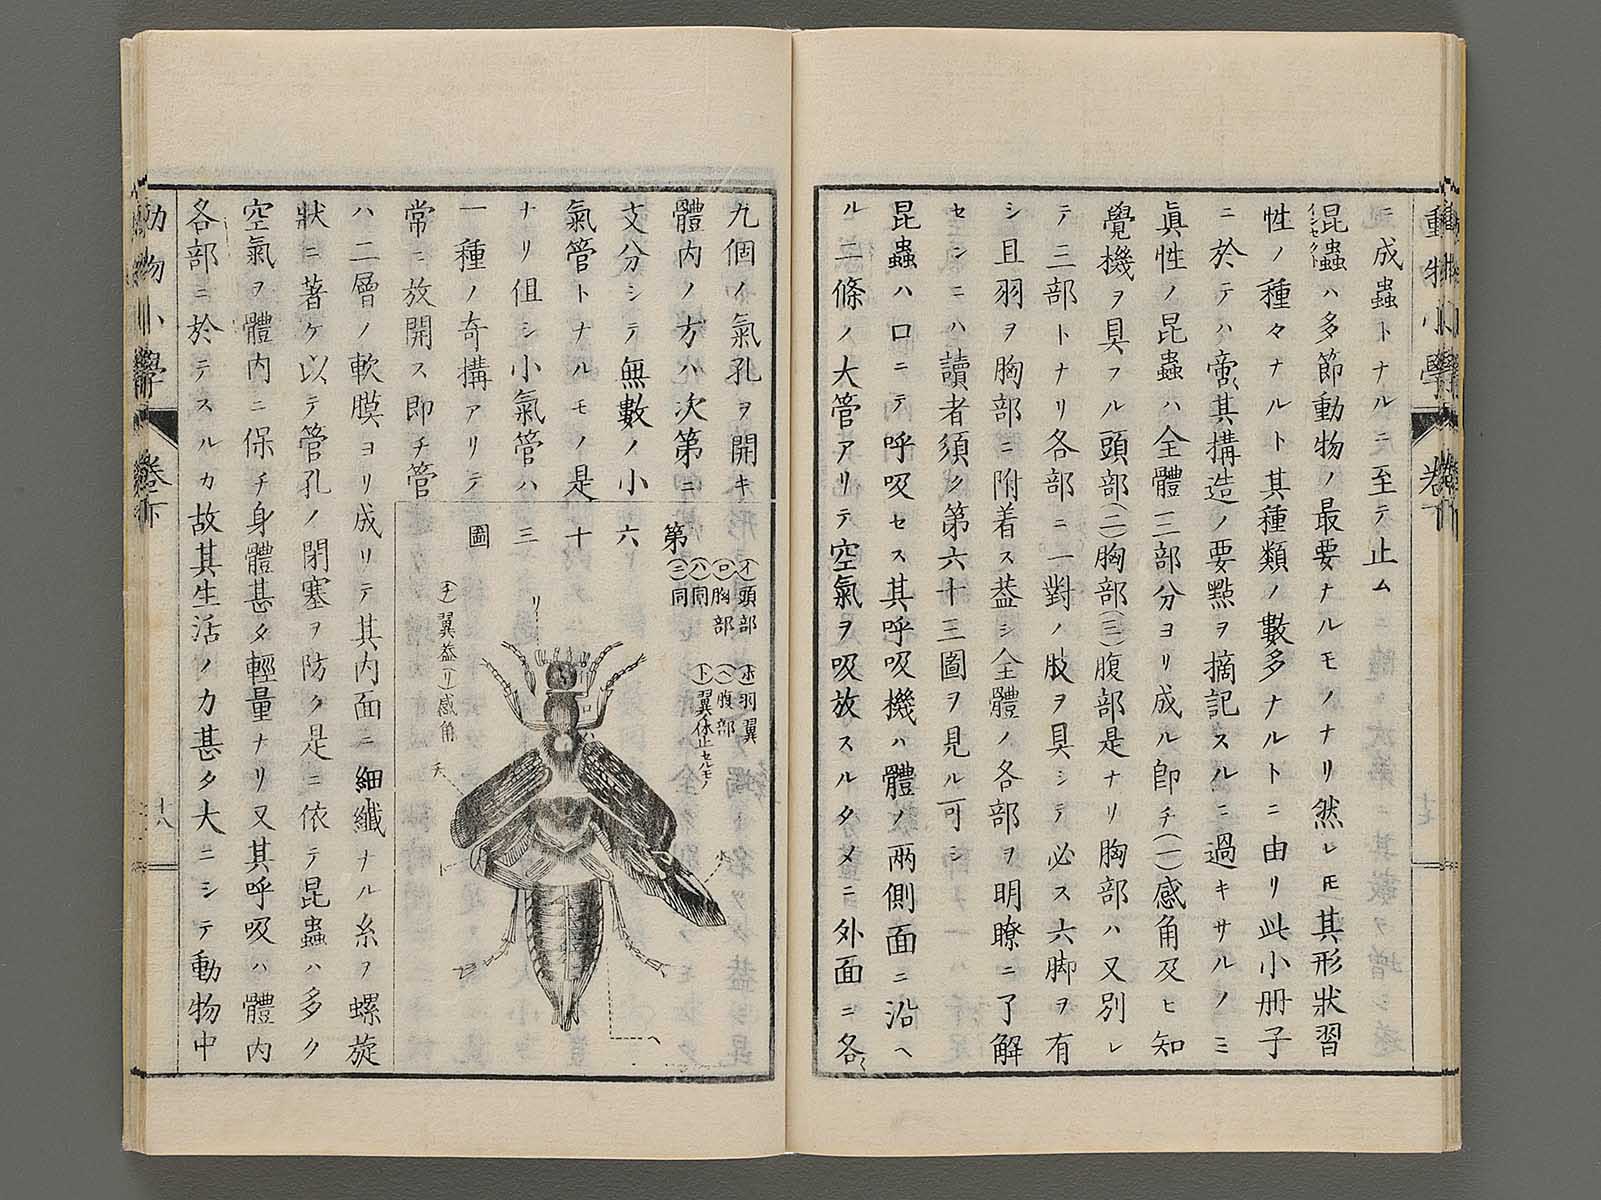 動物小學 卷下
ニ成蟲トナルニ至テ止ム
昆蟲ハ多節動物ノ最要ナルモノナリ然レ𪜈其形狀習
インセクト
性ノ種々ナルト其種類ノ數多ナルトニ由リ此小册子
ニ於テハ啻ニ其構造ノ要點ヲ摘記スルニ過キサルノミ
眞性ノ昆蟲ハ全體三部分ヨリ成ル卽チ(一)感角及ヒ知
覺機ヲ具フル頭部(二)胸部(三)腹部是ナリ胸部ハ又別レ
テ三部トナリ各部ニ一對ノ肢ヲ具シテ必ス六脚ヲ有
シ且羽ヲ胸部ニ附着ス葢シ全體ノ各部ヲ明瞭ニ了解
セシニハ讀者須ク第六十三圖ヲ見ル可シ
昆蟲ハ口ニテ呼吸セス其呼吸機ハ體ノ兩側面ニ沿ヘ
ル二條ノ大管アリテ空氣ヲ吸放スルタメニ外面ニ各〻
九個ノ氣孔ヲ開キ
體內ノ方ハ次第ニ
支分シテ無數ノ小
氣管トナルモノ是
ナリ但シ小氣管ハ
一種ノ奇構アリテ
常ニ放開ス卽チ管
第六十三圖
(イ)頭部
(ロ)胸部
(ハ)同
(ニ)同
(ホ)羽翼
(ヘ)腹部
(ト)翼休止セルモノ
(チ)翼葢(リ)感角
リ
ロ
チ
ト
ホ
ヘ
ハ二層ノ軟膜ヨリ成リテ其內面ニ細纖ナル糸ヲ螺旋
狀ニ著ケ以テ管孔ノ閉塞ヲ防ク是ニ依テ昆蟲ハ多ク
空氣ヲ體內ニ保チ身體甚タ輕量ナリ又其呼吸ハ體內
各部ニ於テスルカ故其生活ノ力甚タ大ニシテ動物中
動物小學 卷下
十八